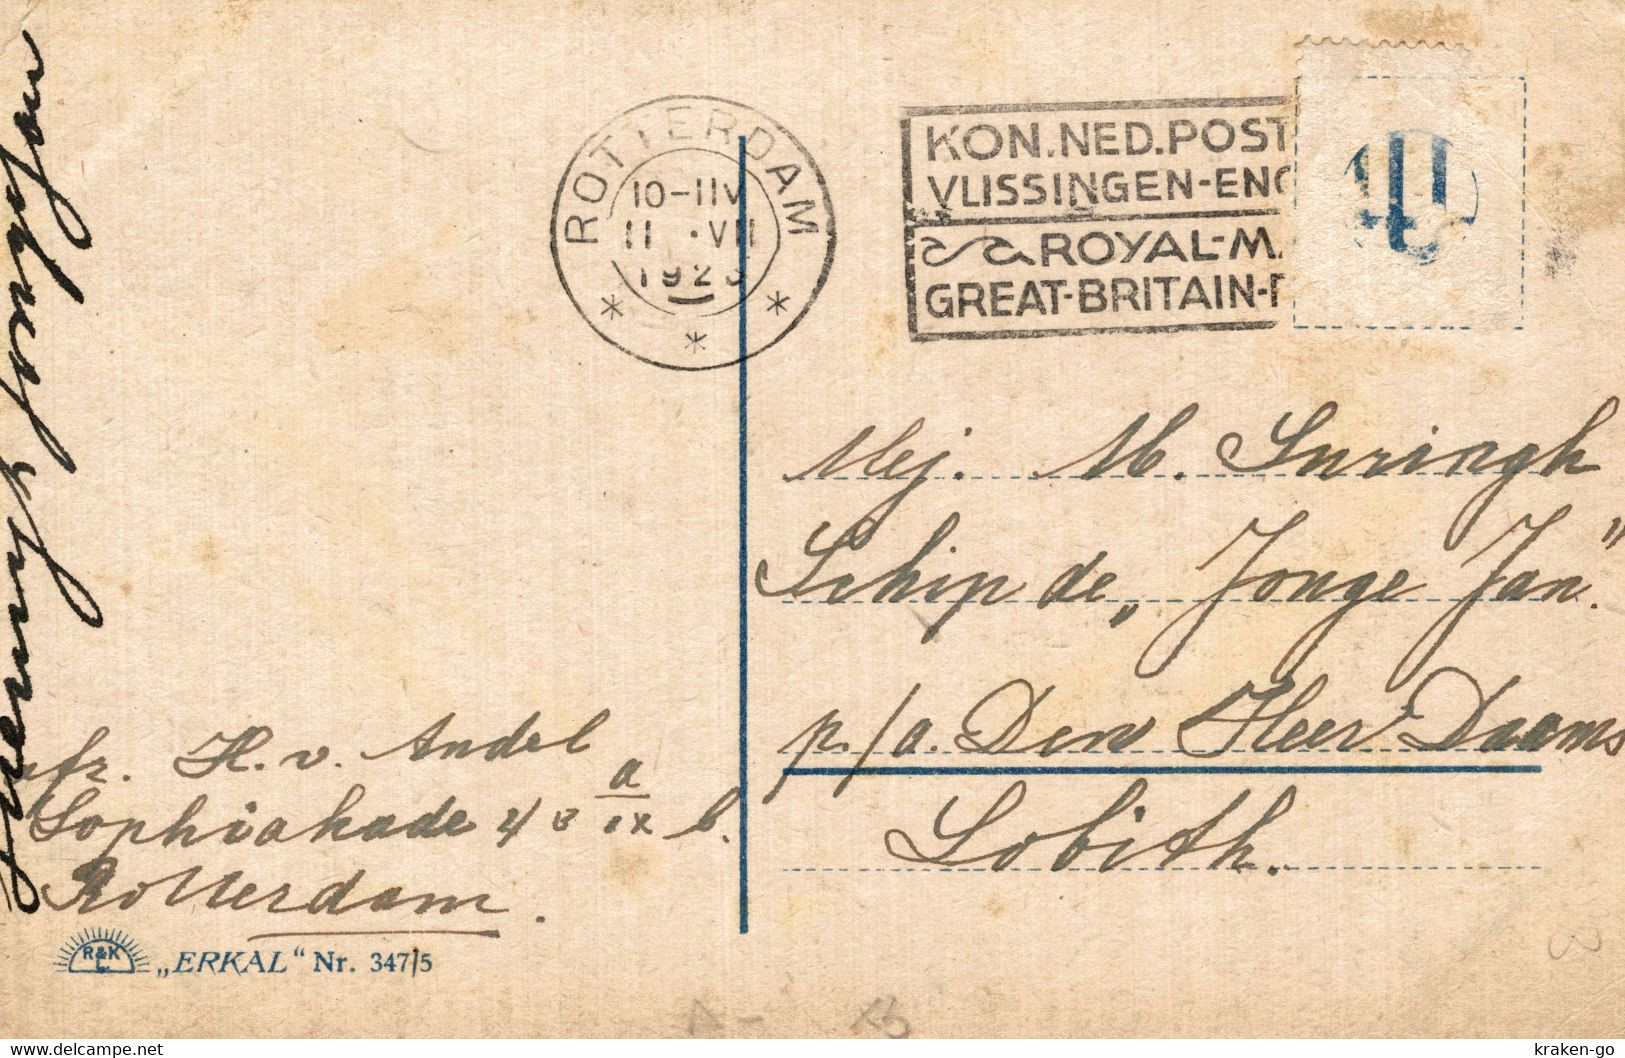 ROTTERDAM
10-11V
11 .VII
192
KON.NED.POST
VLISSINGEN-ENG
ROYAL-MA
GREAT-BRITAIN-
Mej. M. Suringh
Schip de „Jonge Jan.”
p./a. Den Heer Daams
Lobith.
afz. H. v. Andel
Sophiakade 43 a/IX b.
Rotterdam.
R&K
L.
„ERKAL“ Nr. 347/5
http://www.delcampe.net
kraken-go